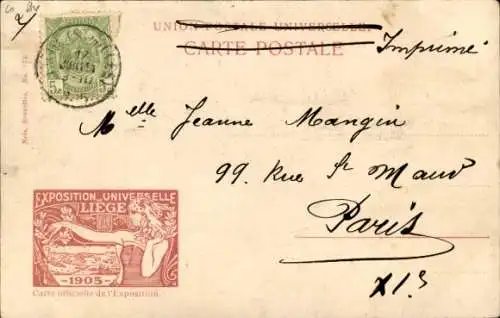 UNION POSTALE UNIVERSELLE.
CARTE POSTALE
Imprimé
5
5
Mlle Jeanne Mangin
99. Rue St Maur
Paris
XIe
EXPOSITION UNIVERSELLE
LIÈGE
1905
Carte officielle de l'Exposition.
Nels, Bruxelles.